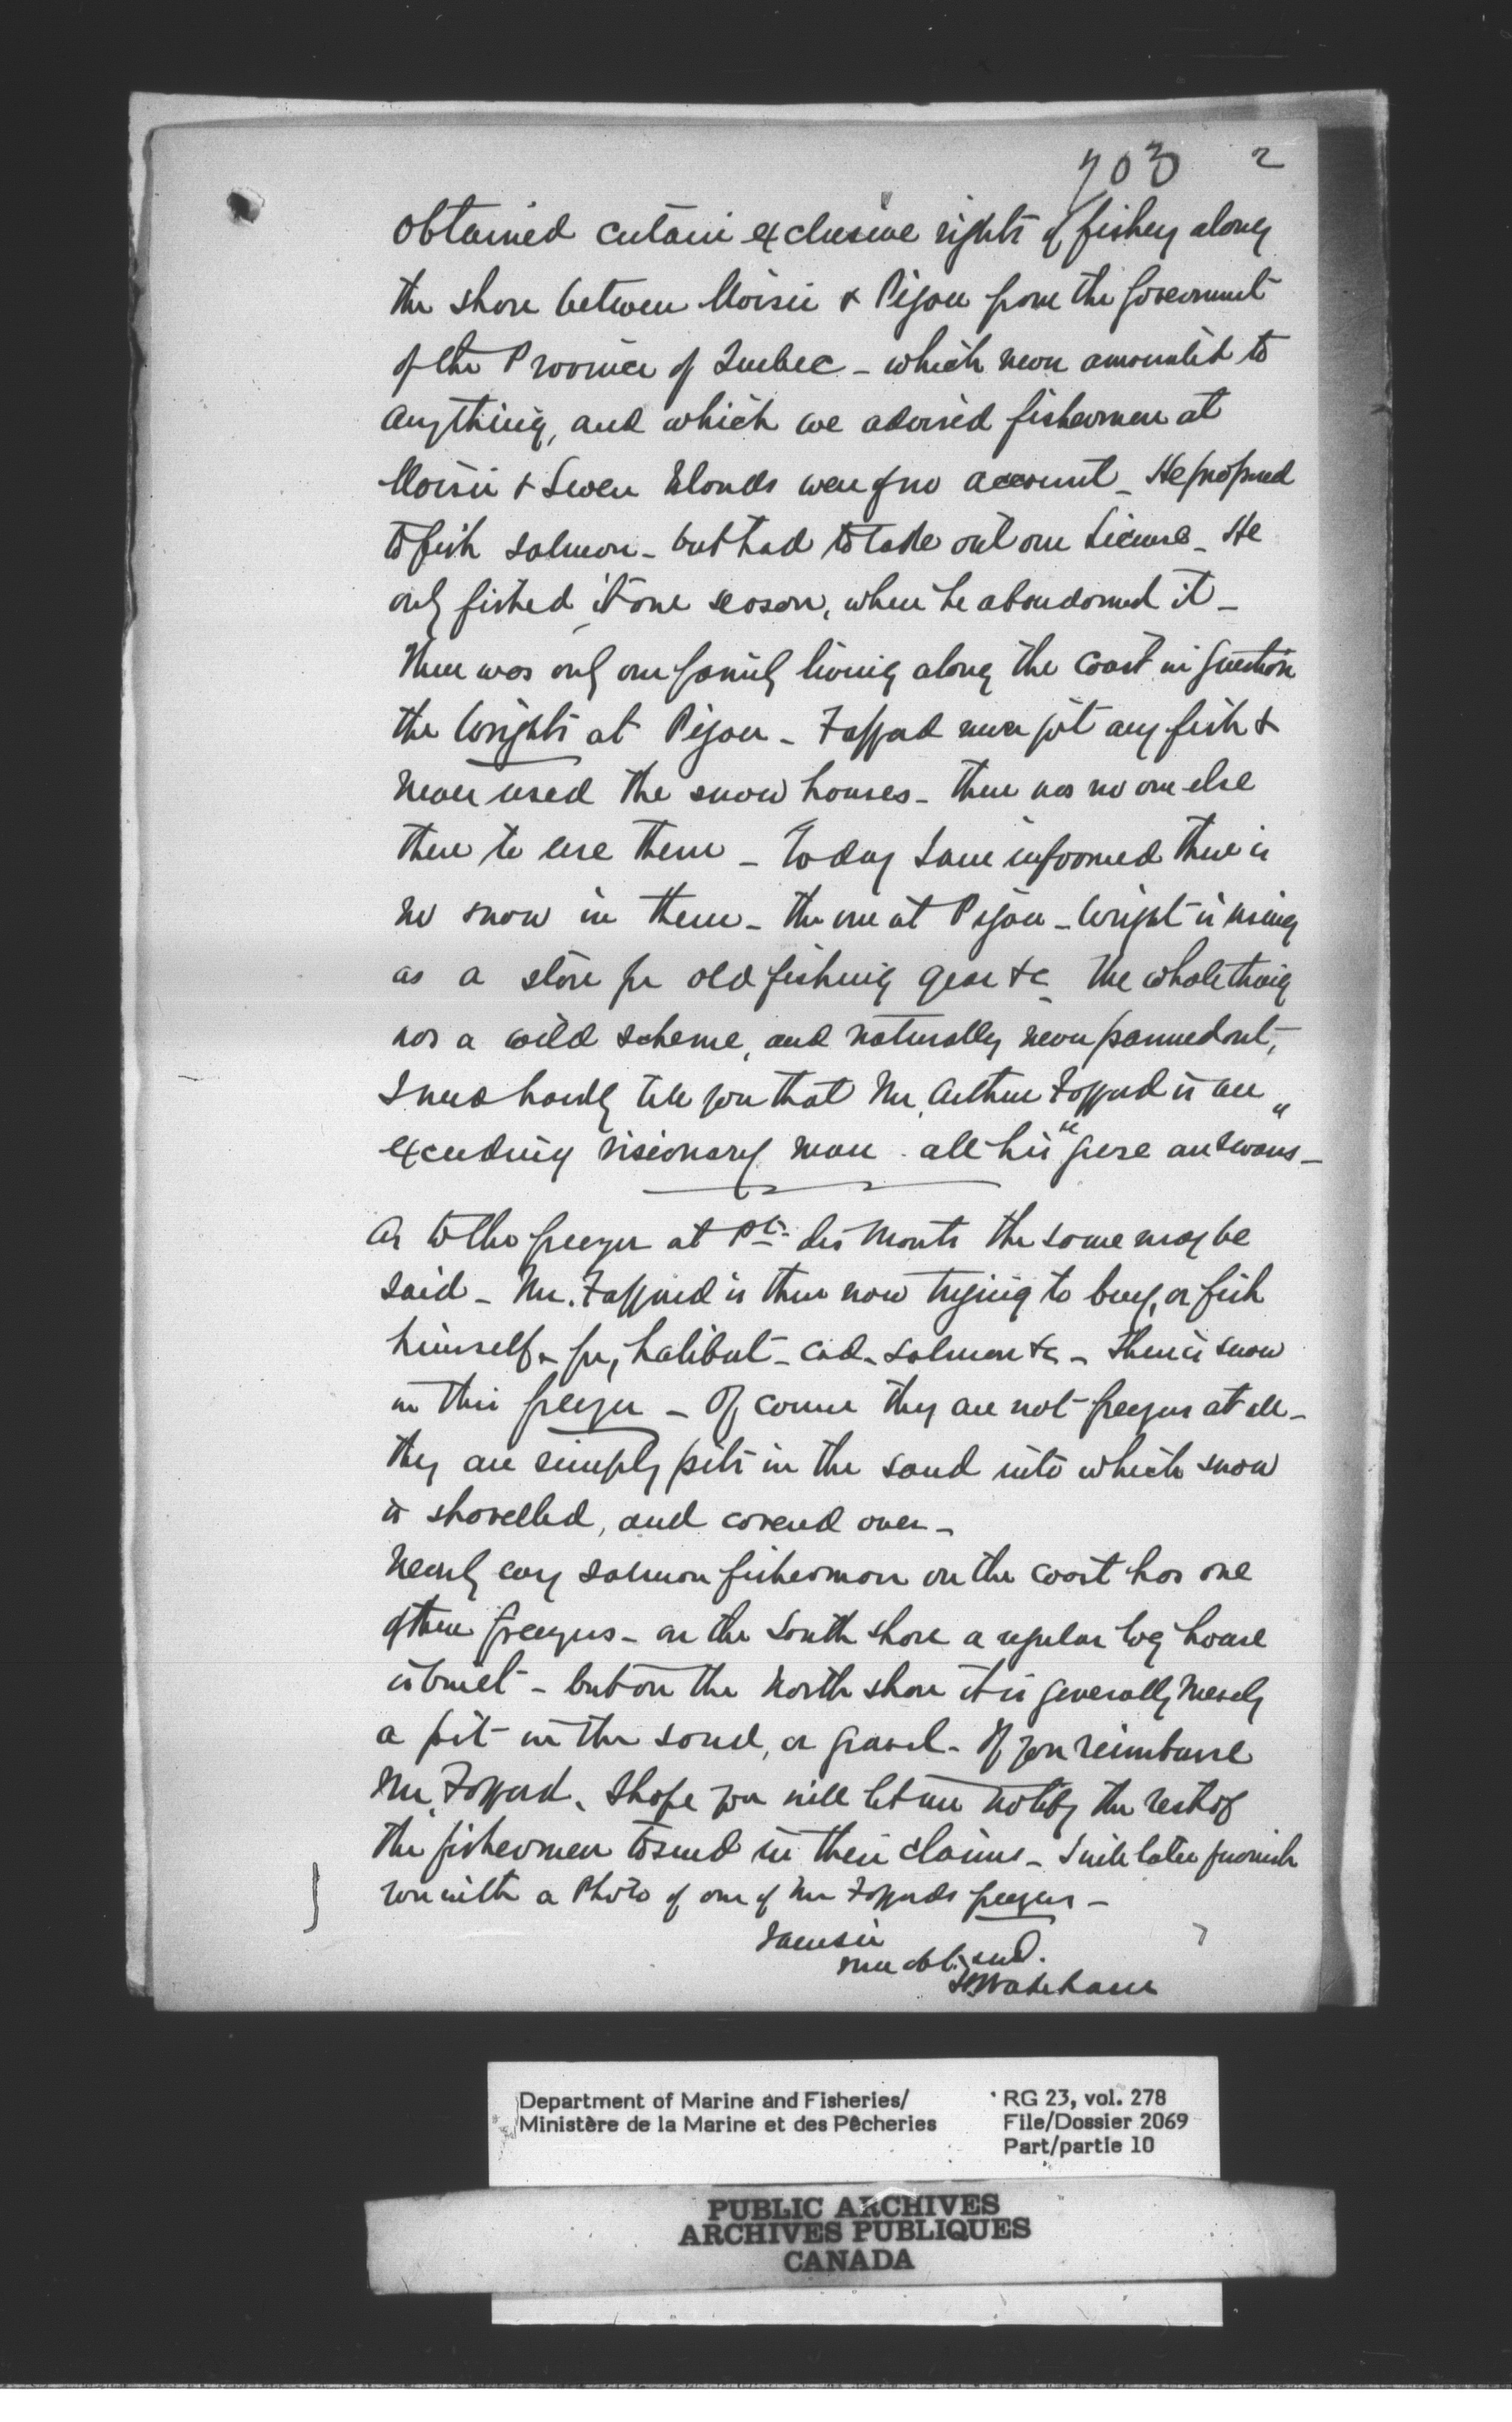 703 2
obtained certain exclusive rights of fishing along
the shore between Moisie & Pigou from the Government
of the Province of Quebec - which never amounted to
anything, and which we advised fishermen at
Moisie & Seven Islands were of no account - He proposed
to fish salmon - but had to take out our License - He
only fished it one season, when he abandoned it -
There was only one family living along the coast in question
the Wrights at Pigou - Fafard never got any fish &
never used the snow houses - there was no one else
there to use them - Today I am informed there is
no snow in them - the one at Pigou - Wright is using
as a store for old fishing gear &c - The whole thing
was a wild scheme, and naturally never panned out,
I need hardly tell you that Mr. Arthur Fafard is an
exceeding visionary man. all his "geese are swans" -
As to the freezer at Pte. des Monts the same may be
said - Mr. Fafard is there now trying to buy, or fish
himself - for, halibut - cod - salmon &c - there is snow
in this freezer - Of course they are not freezers at all -
they are simply pits in the sand into which snow
is shovelled, and covered over -
Nearly every salmon fisherman on the coast has one
of these freezers - on the South shore a regular log house
is built - but on the North shore it is generally merely
a pit in the sand, or gravel - If you reimburse
Mr. Fafard, I hope you will let me notify the rest of
the fishermen to send in their claims - I will later furnish
you with a Photo of one of Mr Fafards freezers -
I am sir
your obt. servt.
Wm Wakeham
Department of Marine and Fisheries/
Ministère de la Marine et des Pêcheries
RG 23, vol. 278
File/Dossier 2069
Part/partie 10
PUBLIC ARCHIVES
ARCHIVES PUBLIQUES
CANADA